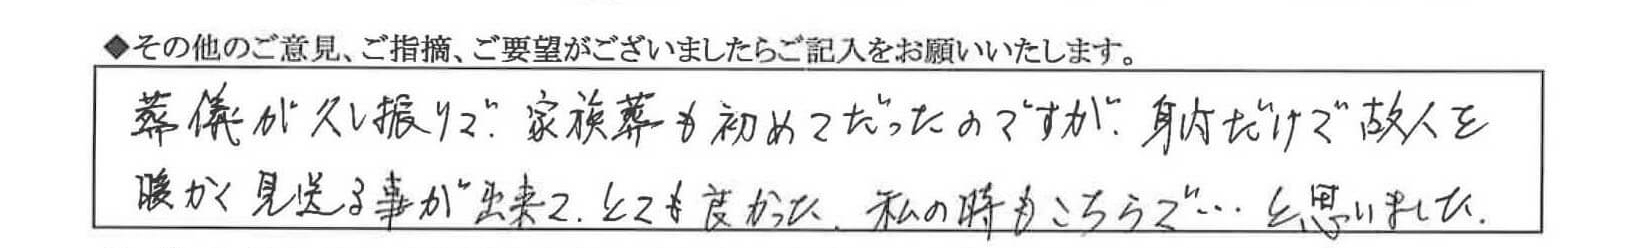 ◆その他のご意見、ご指摘、ご要望がございましたらご記入をお願いいたします。
葬儀が久し振りで、家族葬も初めてだったのですが、身内だけで故人を
暖かく見送る事が出来て、とても良かった、私の時もこちらで…と思いました。